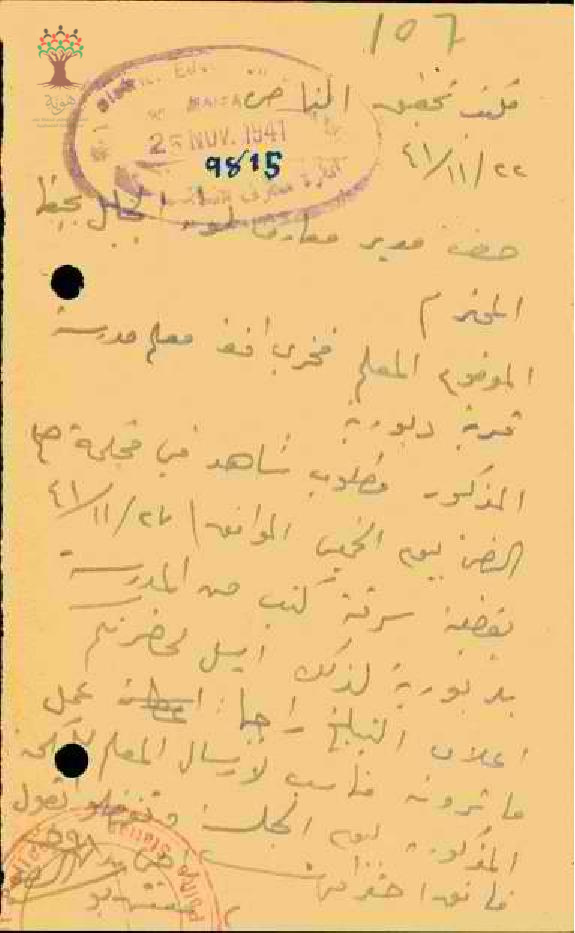 107
مكتب تحقيق الناصرة
District Edu
HAIFA
25 NOV. 1941
9815
٤١/١١/٢٢
حضرة مدير معارف لواء الجليل بحيفا
المحترم
الموضوع المعلم فخري افندي معلم مدرسة
قرية دبورية
المذكور مطلوب شاهد في محكمة صلح
يوم الخميس الموافق ٤١/١١/٢٧
بقضية سرقة كتب من المدرسة
بدبورية لذلك ارسل لحضرتكم
اعلان التبليغ راجيا عمل
ما ترونه مناسب لارسال المعلم للمحكمة
المذكورة يوم الجلسة وتفضلوا بقبول
فائق احترامي
Police Station
هوية